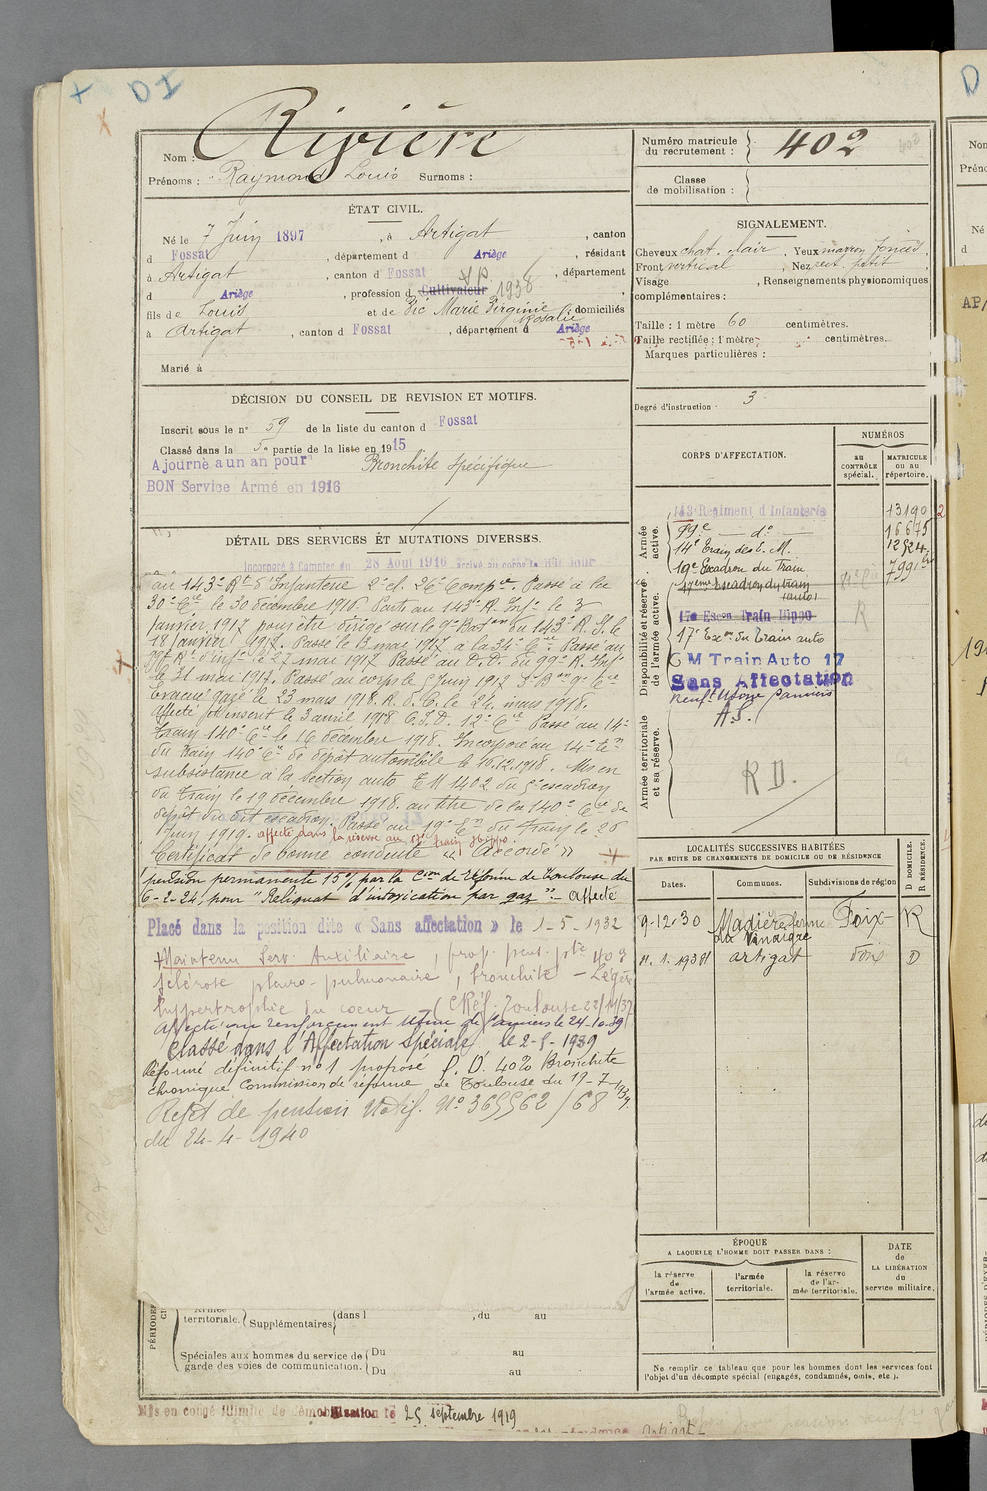 + D I
Nom : Rivière
Prénoms : Raymond Louis Surnoms :
Numéro matricule du recrutement : 402
Classe de mobilisation :
ÉTAT CIVIL.
Né le 7 Juin 1897, à Artigat, canton
d Fossat, département d Ariège, résidant
à Artigat, canton d Fossat, département
d Ariège, profession d Cultivateur 1938
fils de Louis et de Pic Marie Virginie Rosalie, domiciliés
à Artigat, canton d Fossat, département d Ariège
Marié à
SIGNALEMENT.
Cheveux chat. clair, Yeux marron foncés,
Front vertical, Nez rect. petit,
Visage, Renseignements physionomiques
complémentaires :
Taille : 1 mètre 60 centimètres.
Taille rectifiée : 1 mètre centimètres.
Marques particulières :
Degré d'instruction : 3
DÉCISION DU CONSEIL DE REVISION ET MOTIFS.
Inscrit sous le n° 59 de la liste du canton d Fossat
Classé dans la 5e partie de la liste en 1915
Ajourné a un an pour Bronchite spécifique
BON Service Armé en 1916
DÉTAIL DES SERVICES ET MUTATIONS DIVERSES.
Incorporé à Compter du 28 Août 1916 arrivé au corps le dit jour
au 143e Rt d'Infanterie 2e cl. 26e Compie. Passé à la
30e Cie le 30 décembre 1916. Parti au 143e R. Infie le 3
Janvier 1917 pour être dirigé sur le 9e Baton du 143e R. I. le
18 Janvier 1917. Passé le 13 mai 1917 à la 34e Cie. Passé au
99e Rt d'Infie le 27 mai 1917 Passé au D.D. du 99e R. Infie
le 31 mai 1917. Passé au corps le 5 Juin 1917 3e Bon 9e Cie
Evacué gazé le 23 mars 1918. R. d. C. le 24 mars 1918.
affecté le 3 avril 1918 C.I.D. 12e Cie Passé au 14e
train 140e Cie le 16 décembre 1918. Incorporé au 14e
du Train 140e Cie de dépôt automobile le 10.12.1918. Mis en
subsistance à la section auto TM 1402 du 5e escadron
du train le 19 décembre 1918. au titre de la 140e Cie de
dépôt du dit escadron. Passé au 19e En du train le 26
Juin 1919. affecté dans la réserve au 17e train hippo
Certificat de bonne conduite « Accordé »
pension permanente 15% par la Cion de réforme de Toulouse du
6-2-24, pour "Reliquat d'intoxication par gaz". Affecté
Placé dans la position dite « Sans affectation » le 1-5-1932
+ Maintenu Serv. Auxiliaire, prop. pens. pte 40%
sclérose pleuro-pulmonaire, bronchite - Légère
hypertrophie du coeur (CRéf. Toulouse 22/11/37)
Affecté renforcement Usine de Pamiers le 24.10.39
Classé dans l'Affectation Spéciale le 2-9-1939
Réformé définitif n° 1 proposé P. D. 40% Bronchite
chronique Commission de réforme de Toulouse du 19-7-1939.
Rejet de pension Notif. N° 365562/68
du 24-4-1940
CORPS D'AFFECTATION.
NUMÉROS
AU CONTRÔLE spécial.
MATRICULE ou au répertoire.
Armée active.
143 Régiment d'Infanterie 13190
99e — d° — 16675
14e Train des E. M. 12524
19e Escadron du Train 7991
Disponibilité et réserve de l'armée active.
17eme Escadron du train (auto)
17e Escon Train Hippo R
17e Escon du Train auto
C M Train Auto 17
Sans Affectation
Renft Usine Pamiers
A.S.
Armée territoriale et sa réserve.
R D.
LOCALITÉS SUCCESSIVES HABITÉES
PAR SUITE DE CHANGEMENTS DE DOMICILE OU DE RÉSIDENCE
Dates. Communes. Subdivisions de région D DOMICILE. R RÉSIDENCE.
9-12-30 Madière ferme du Vinaigre Foix R
11. 1. 1938 Artigat Foix D
ÉPOQUE
A LAQUELLE L'HOMME DOIT PASSER DANS :
la réserve de l'armée active. l'armée territoriale. la réserve de l'armée territoriale.
DATE de LA LIBÉRATION du service militaire.
Ne remplir ce tableau que pour les hommes dont les services font
l'objet d'un décompte spécial (engagés, condamnés, omis, etc.).
PÉRIODES
Armée territoriale. Supplémentaires dans l , du au
Spéciales aux hommes du service de garde des voies de communication. Du au
Du au
Mis en congé illimité de démobilisation le 25 septembre 1919